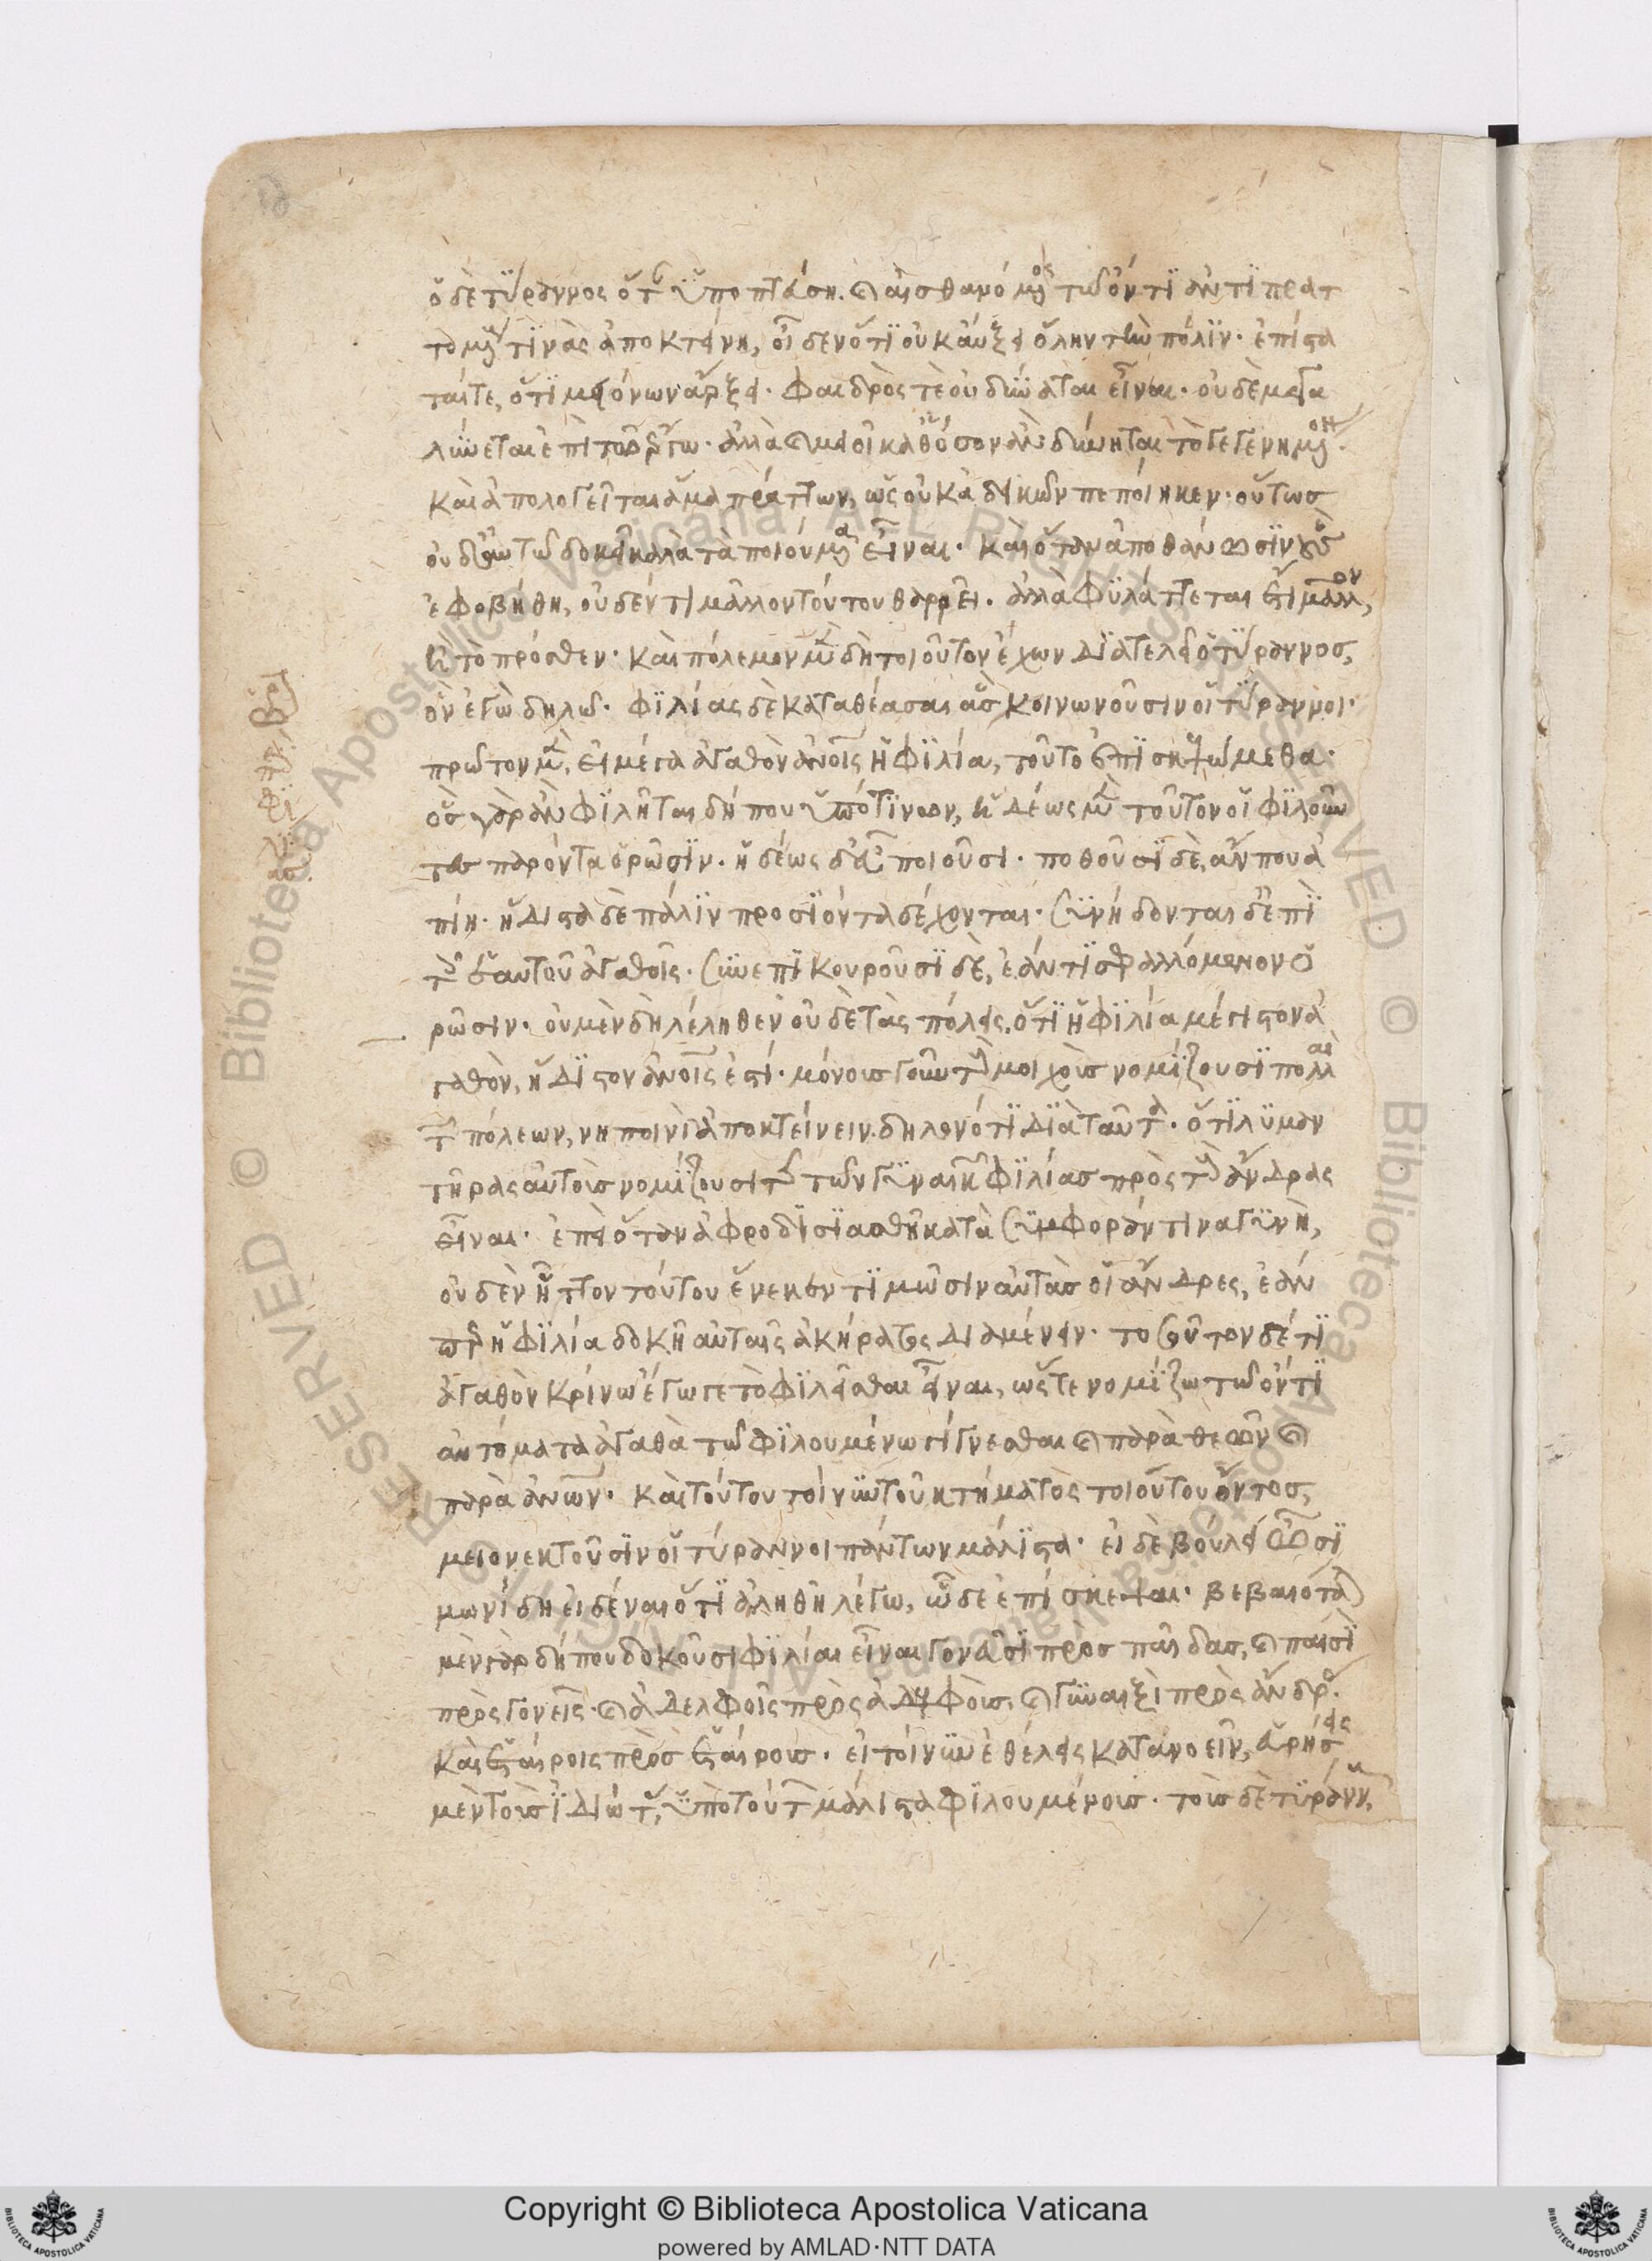 ὁ δὲ τύραννος ὅταν ὑποπτεύσῃ. καὶ αἰσθανόμενος τῷ ὄντι ἀντιπρατ
τομένους τινὰς ἀποκτείνῃ, οἶδεν ὅτι οὐκ αὔξει ὅλην τὴν πόλιν. ἐπίστα
ταί τε, ὅτι μειόνων ἄρξει. φαιδρός τε οὐ δύναται εἶναι. οὐδὲ μεγα
λύνεται ἐπὶ τῷ ἔργῳ. ἀλλὰ καὶ μειοῖ καθόσον ἂν δύνηται τὸ γεγενημένον.
καὶ ἀπολογεῖται ἅμα πράττων, ὡς οὐκ ἀδικῶν πεποίηκεν. οὕτως
οὐδ' αὐτῷ δοκεῖ καλὰ τὰ ποιούμενα εἶναι. καὶ ὅταν ἀποθάνωσιν οὓς
ἐφοβήθη, οὐδέν τι μᾶλλον τούτου θαρρεῖ. ἀλλὰ φυλάττεται ἔτι μᾶλλον,
ἢ τὸ πρόσθεν. καὶ πόλεμον μὲν δὴ τοιοῦτον ἔχων διατελεῖ ὁ τύραννος,
ὃν ἐγὼ δηλῶ. φιλίας δὲ καταθέασαι ἃς κοινωνοῦσιν οἱ τύραννοι.
πρῶτον μὲν, εἰ μέγα ἀγαθὸν ἀνοις ἡ φιλία, τοῦτο ἐπισκεψώμεθα.
ὃς γὰρ ἂν φιλῆται δήπου ὑπό τινων, ἡδέως μὲν τοῦτον οἱ φιλοῦν
τες παρόντα ὁρῶσιν. ἡδέως δ' εὖ ποιοῦσι. ποθοῦσι δὲ, ἄν που ἀ
πίῃ. ἥδιστα δὲ πάλιν προσιόντα δέχονται. συνήδονται δ' ἐπὶ
τοῖς αὐτοῦ ἀγαθοῖς. συνεπικουροῦσι δὲ, ἐάν τι σφαλλόμενον ὁ
ρῶσιν. οὐ μὲν δὴ λέληθεν οὐδὲ τὰς πόλεις, ὅτι ἡ φιλία μέγιστον ἀ
γαθὸν, ἥδιστον ἀνοις ἐστί. μόνους γοῦν τοὺς μοιχοὺς νομίζουσι πολλαὶ
τῶν πόλεων, νηποινὶ ἀποκτείνειν. δηλονότι διὰ ταῦτα. ὅτι λυμαν
τῆρας αὐτοὺς νομίζουσι τῆς τῶν γυναικῶν φιλίας πρὸς τοὺς ἄνδρας
εἶναι. ἐπεὶ ὅταν ἀφροδισιασθῇ κατὰ συμφοράν τινα γυνὴ,
οὐδὲν ἧττον τούτου ἕνεκεν τιμῶσιν αὐτὰς οἱ ἄνδρες, ἐάν
περ ἡ φιλία δοκῇ αὐταῖς ἀκήρατος διαμένειν. τοσοῦτον δέ τι
ἀγαθὸν κρίνω ἔγωγε τὸ φιλεῖσθαι εἶναι, ὥστε νομίζω τῷ ὄντι
αὐτόματα ἀγαθὰ τῷ φιλουμένῳ γίγνεσθαι καὶ παρὰ θεῶν καὶ
παρὰ ἀνων. καὶ τούτου τοίνυν τοῦ κτήματος τοιούτου ὄντος,
μειονεκτοῦσιν οἱ τύραννοι πάντων μάλιστα. εἰ δὲ βούλει ὦ σι
μωνίδη εἰδέναι ὅτι ἀληθῆ λέγω, ὧδε ἐπίσκεψαι. βεβαιόταται
μὲν γὰρ δήπου δοκοῦσι φιλίαι εἶναι γονεῦσι πρὸς παῖδας, καὶ παισὶ
πρὸς γονεῖς. καὶ ἀδελφοῖς πρὸς ἀδελφοὺς, καὶ γυναιξὶ πρὸς ἄνδρας.
καὶ ἑταίροις πρὸς ἑταίρους. εἰ τοίνυν ἐθέλεις κατανοεῖν, εὑρήσεις
μὲν τοὺς ἰδιώτας, ὑπὸ τούτων μάλιστα φιλουμένους. τοὺς δὲ τυράννους,
Copyright © Biblioteca Apostolica Vaticana
powered by AMLAD·NTT DATA